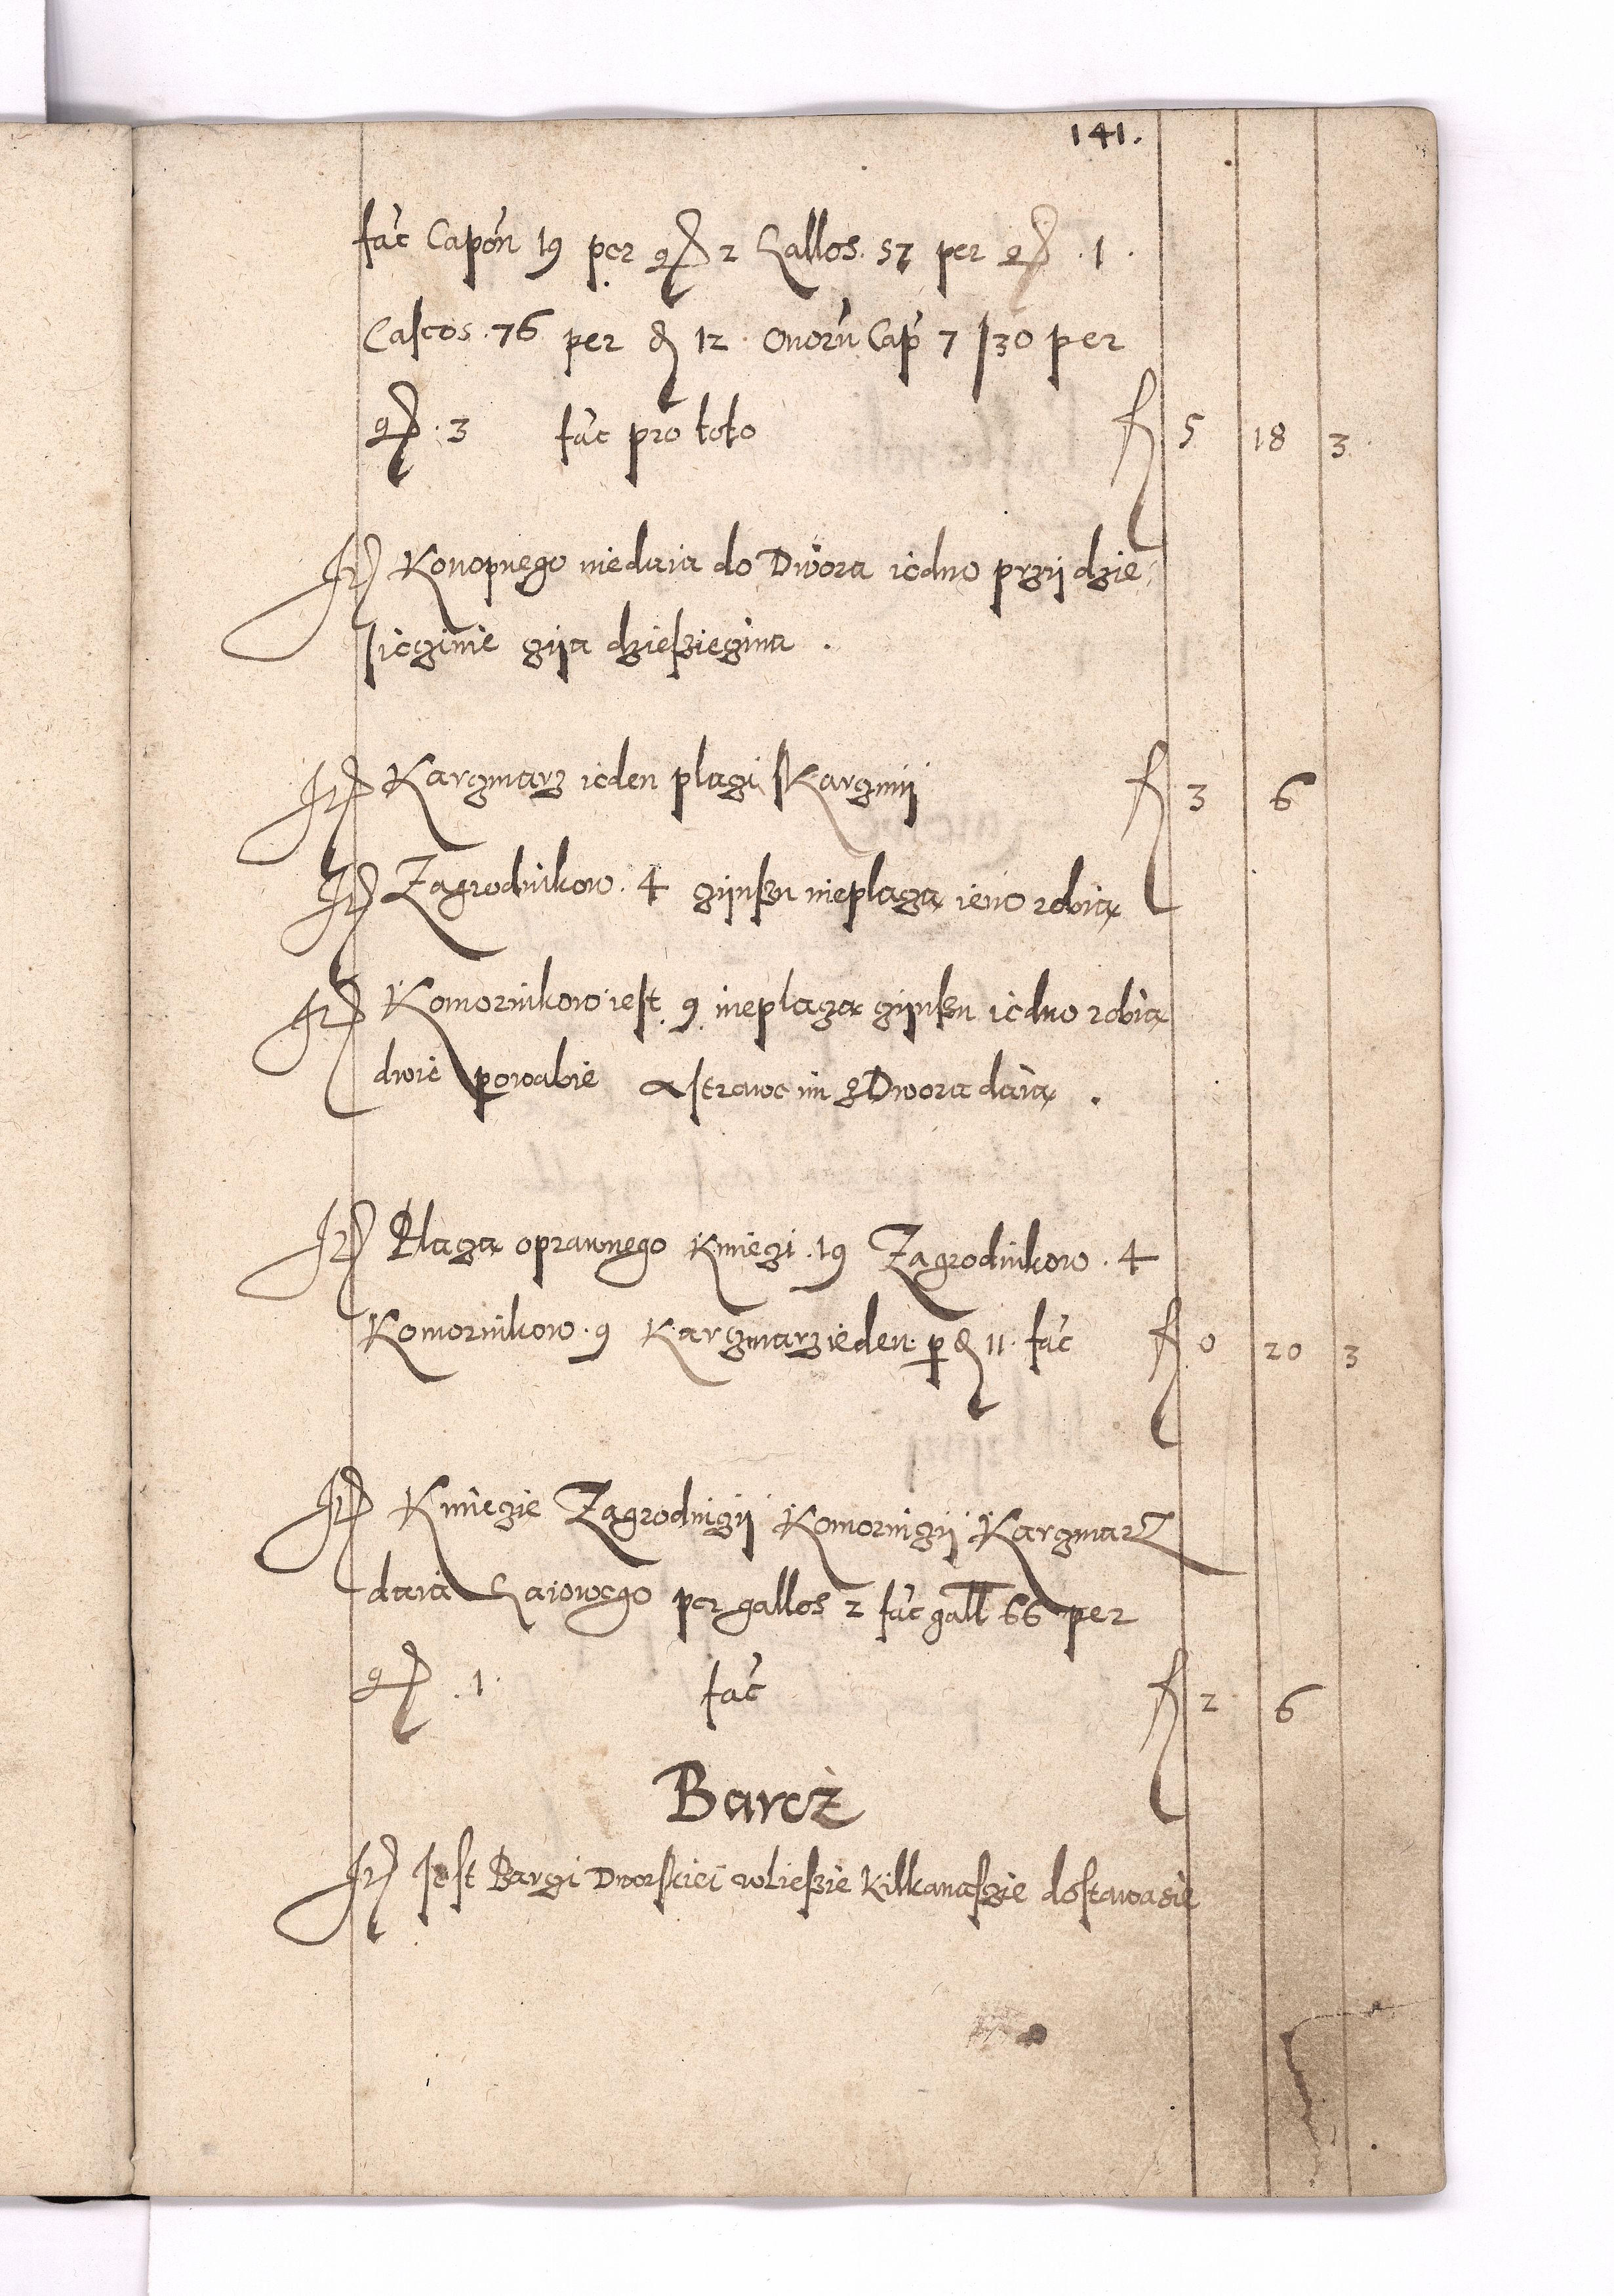 141.
fac̃ Capoń 19 per gſ 2 Gallos. 57 per gſ .1.
Caseos .76 per ₰ 12 Ouorũ Cap̃ 7 / 30 per
gſ. 3 fac̃ pro toto fl 5 18 3.
It Konopnego niedaia do Dwora iedno przÿ dzie
sieczinie czÿia dziesziezina .
It Karczmarz ieden placzi s Karczmÿ fl 3 6
It Zagrodnikow. 4 czÿnszu nieplacza ieno robią
It Komornikow iest. 9. nieplaczą czÿnszu iedno robią
dwie powabie a strawe im z Dwora daią .
It Płaczą oprawnego Kmieczi .19 Zagrodnikow .4
Komornikow .9 Karczmarz ieden. p ₰ 11. fac̃ fl 0 20 3
It Kmieczie Zagrodniczÿ Komorniczÿ Karczmarz
daia Gaiowego per gallos 2 fac̃ gall 66 per
gſ .1. fac̃ fl 2 6
Barcż
It Jest Barczi Dworskiei w liesie Kilkanascie dostawa sie